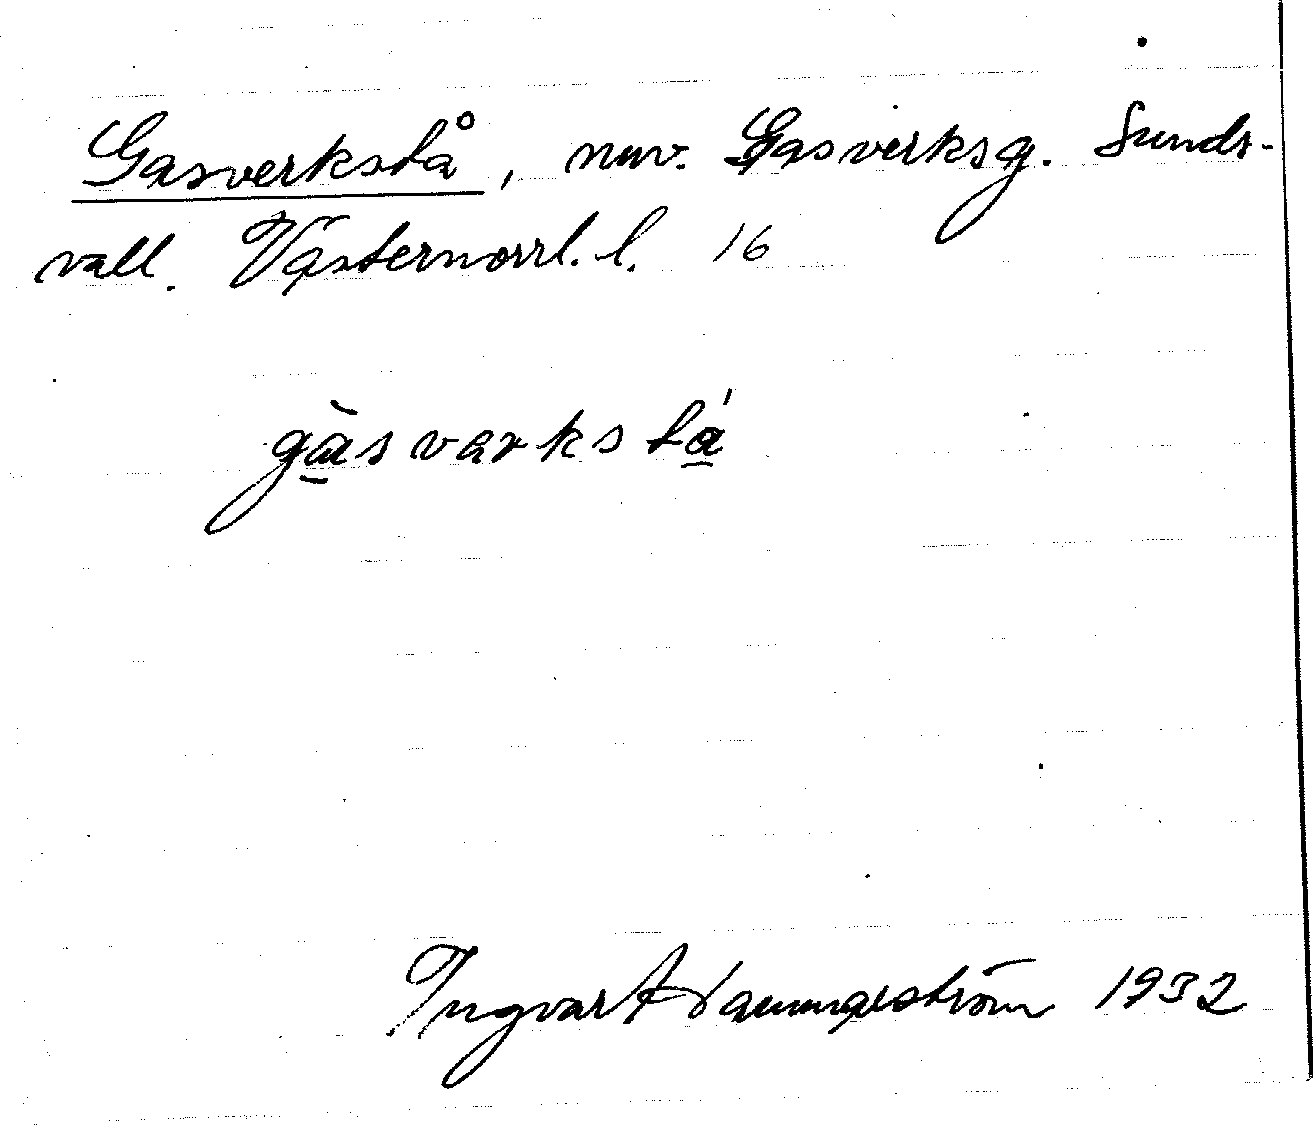 Gasverkstå, nuv. Gasverksg. Sunds-
vall. Västernorrl. l. 16
gàsvarkstá
Ingvar Hammarström 1932